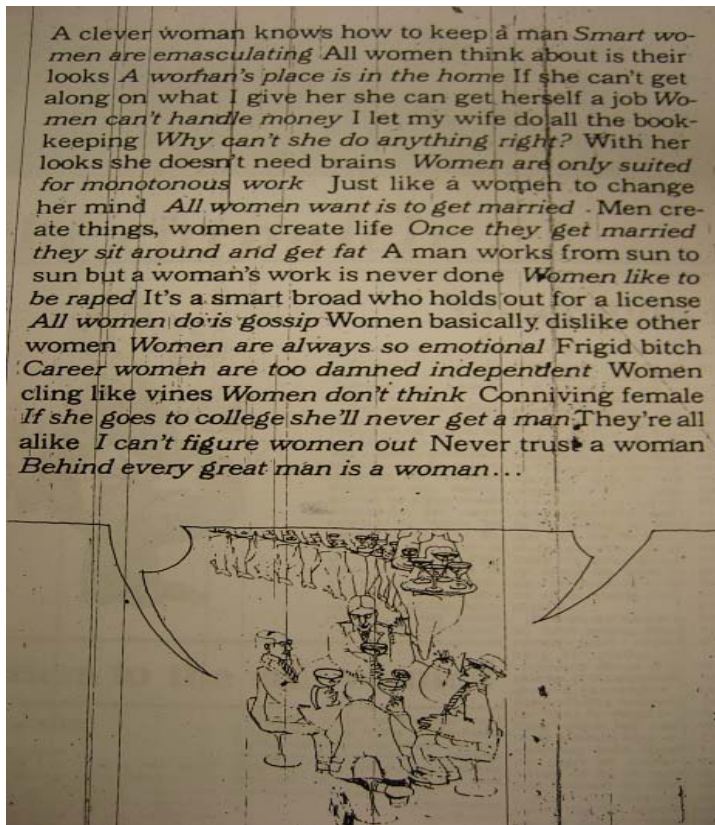 A clever woman knows how to keep a man Smart wo-
men are emasculating All women think about is their
looks A woman's place is in the home If she can't get
along on what I give her she can get herself a job Wo-
men can't handle money I let my wife do all the book-
keeping Why can't she do anything right? With her
looks she doesn't need brains Women are only suited
for monotonous work Just like a women to change
her mind All women want is to get married Men cre-
ate things, women create life Once they get married
they sit around and get fat A man works from sun to
sun but a woman's work is never done Women like to
be raped It's a smart broad who holds out for a license
All women do is gossip Women basically dislike other
women Women are always so emotional Frigid bitch
Career women are too damned independent Women
cling like vines Women don't think Conniving female
If she goes to college she'll never get a man They're all
alike I can't figure women out Never trust a woman
Behind every great man is a woman...